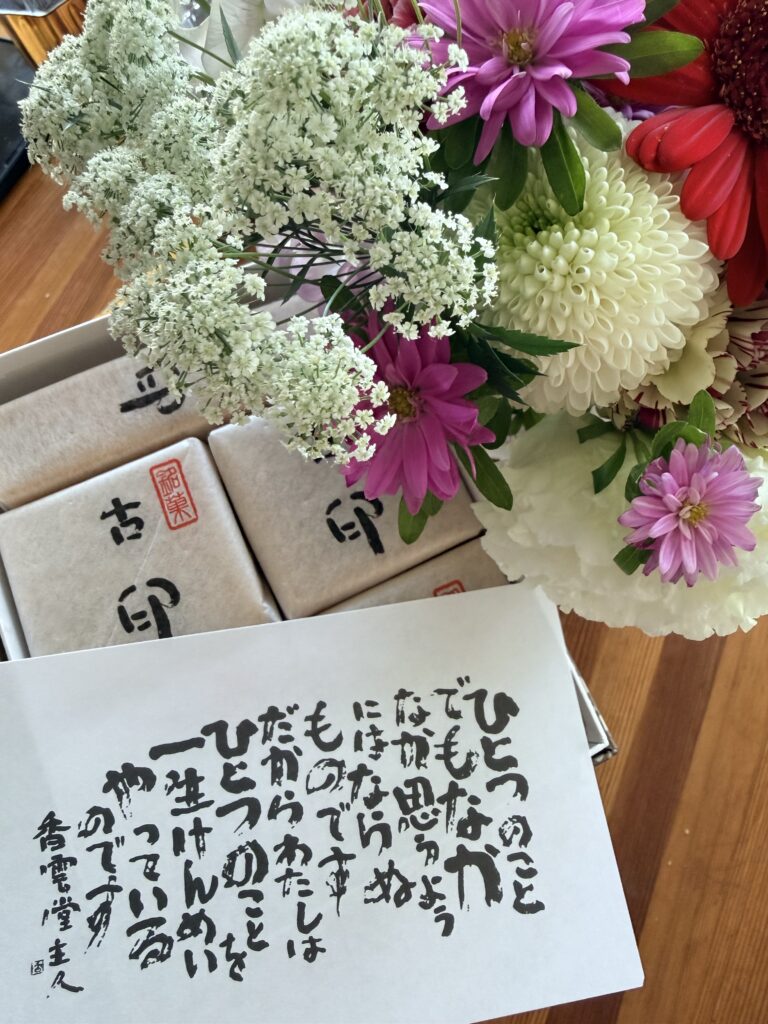 古
印
銘菓
印
ひとつのこと
でもなか
なか思うよう
にはならぬ
ものです
だからわたしは
ひとつのことを
一生けんめい
やっている
のです
香雲堂主人